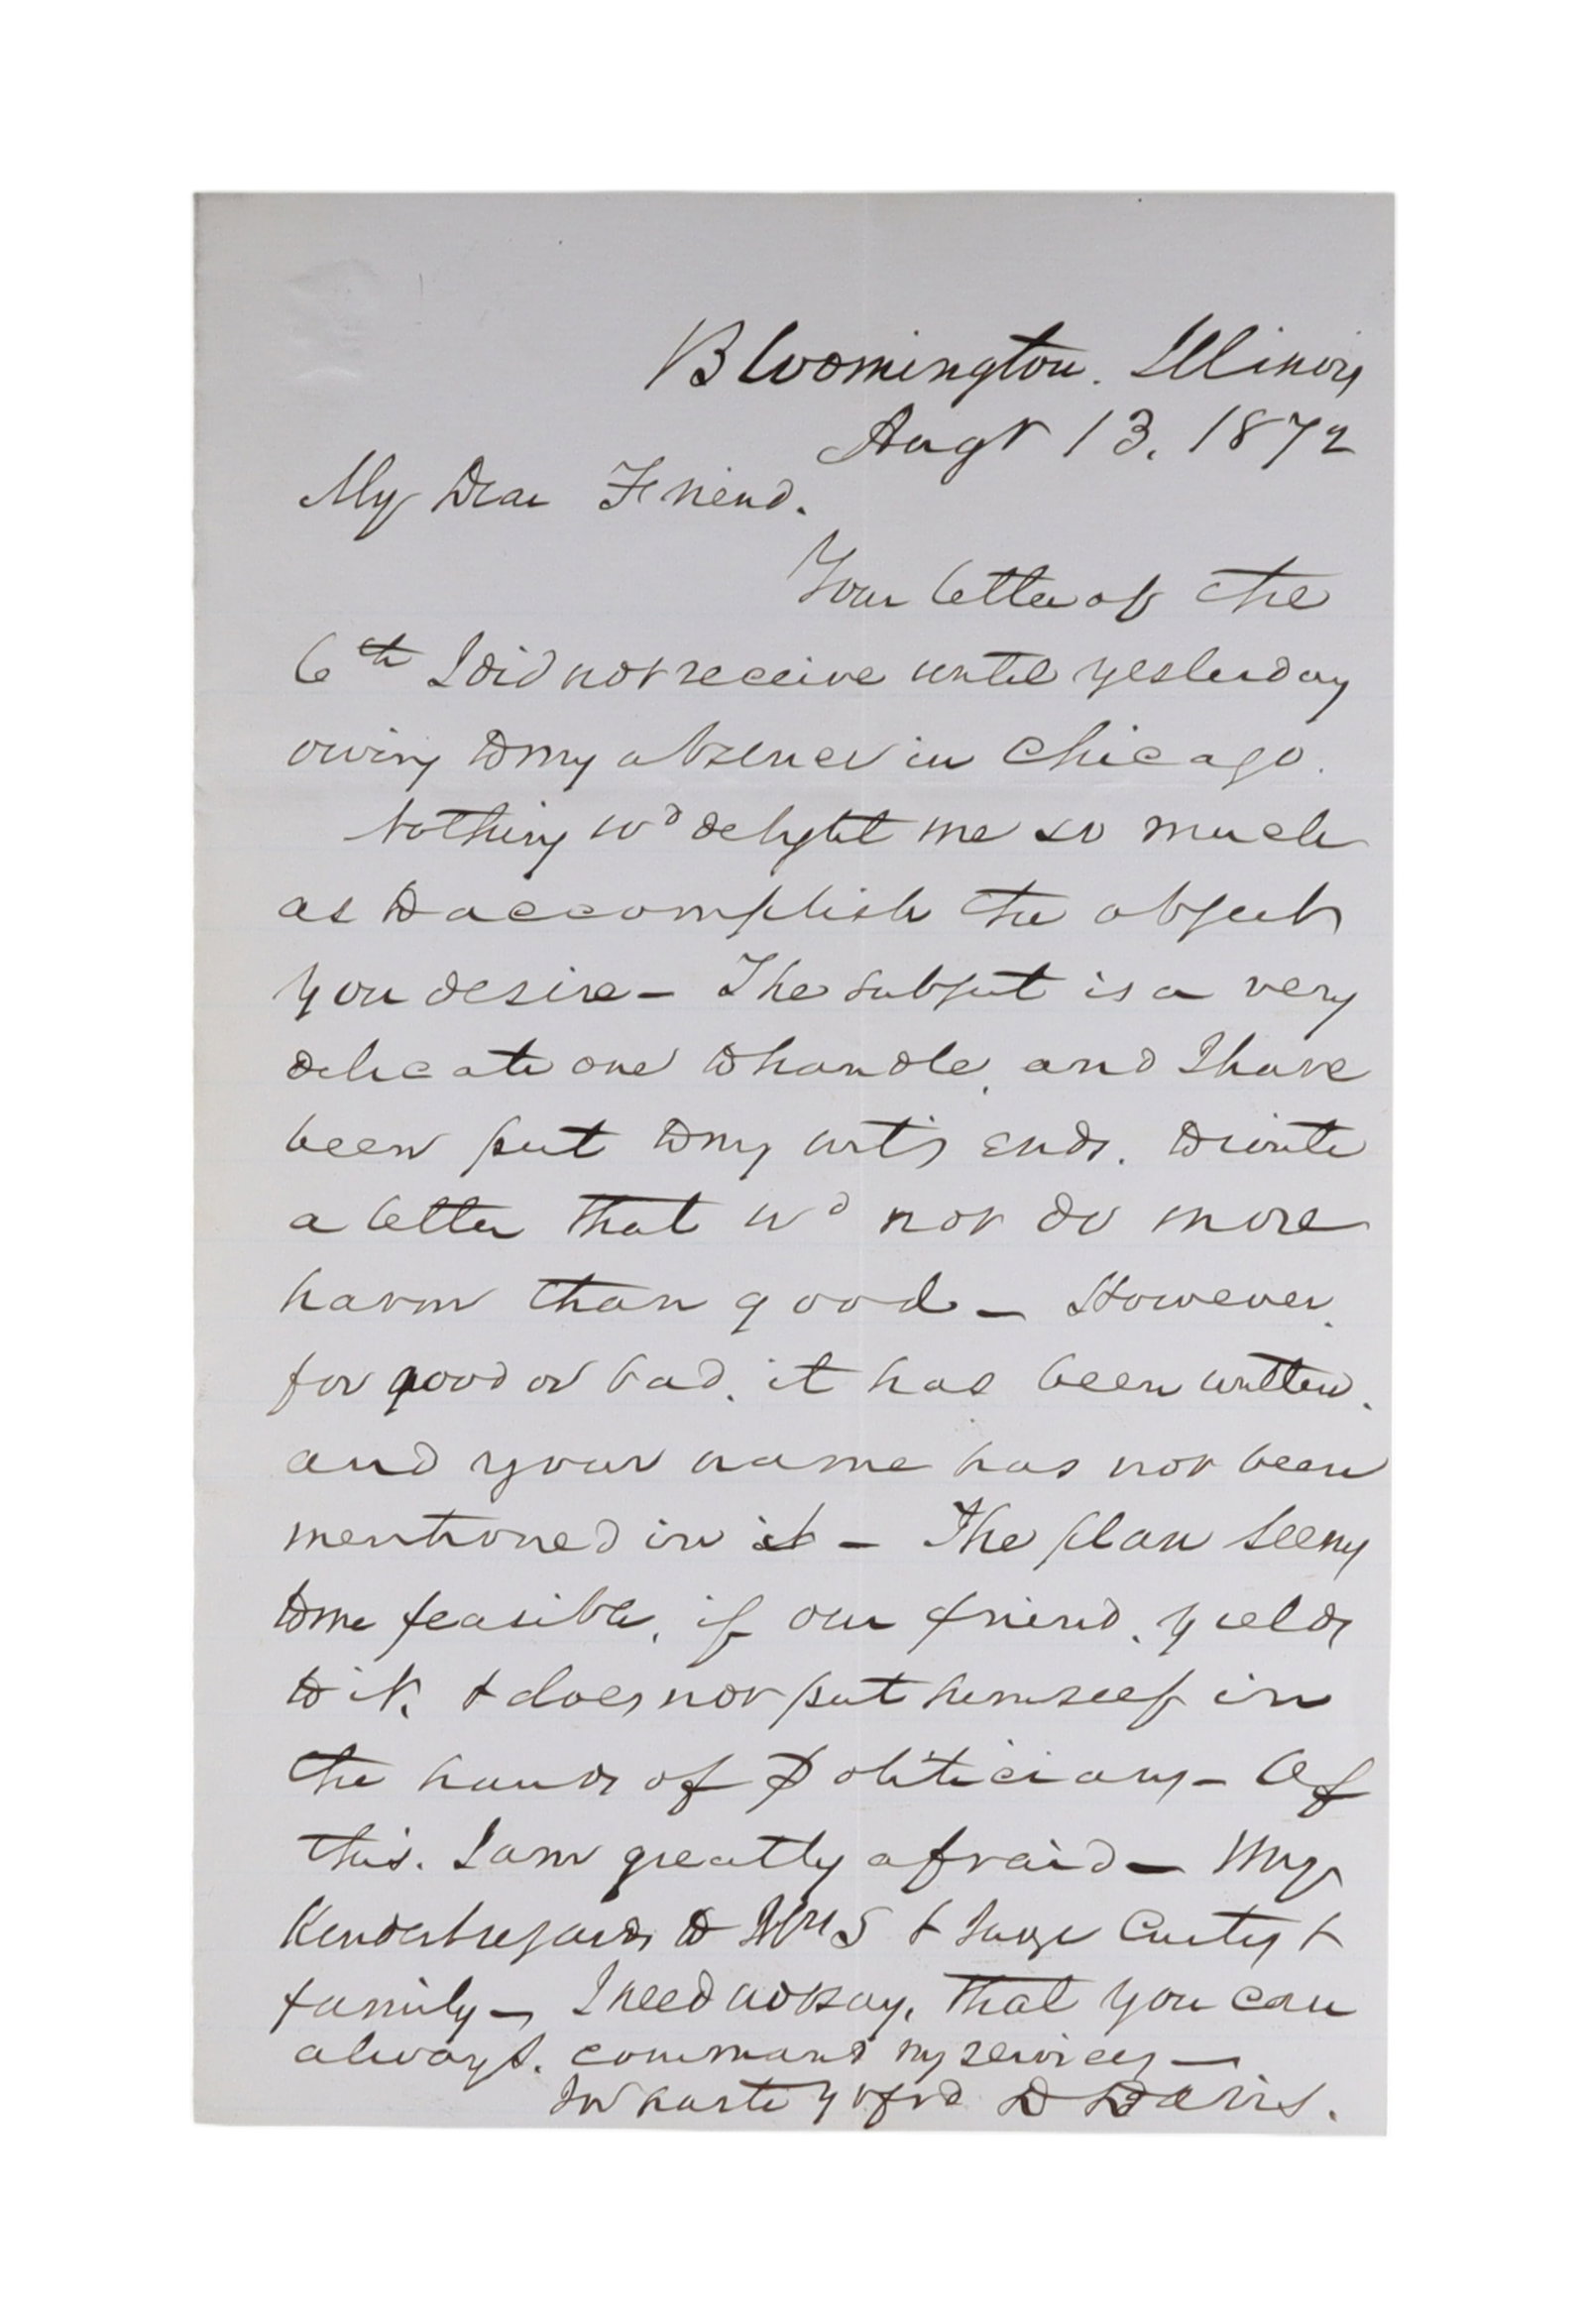 Bloomington. Illinois
Augt 13. 1872
My Dear Friend.
Your letter of the
6th I did not receive until yesterday
owing to my absence in Chicago.
Nothing wd delight me so much
as to accomplish the object
you desire – The subject is a very
delicate one to handle, and I have
been put to my wit's ends. to write
a letter that wd not do more
harm than good – However,
for good or bad, it has been written.
and your name has not been
mentioned in it – The plan seems
to me feasible, if our friend, yields
to it, & does not put himself in
the hands of Politicians – Of
this. I am greatly afraid – My
Kindest regards to Mrs S & Judge Curtis &
family – I need not say, that you can
always. command my services –
In haste yr frd D Davis.